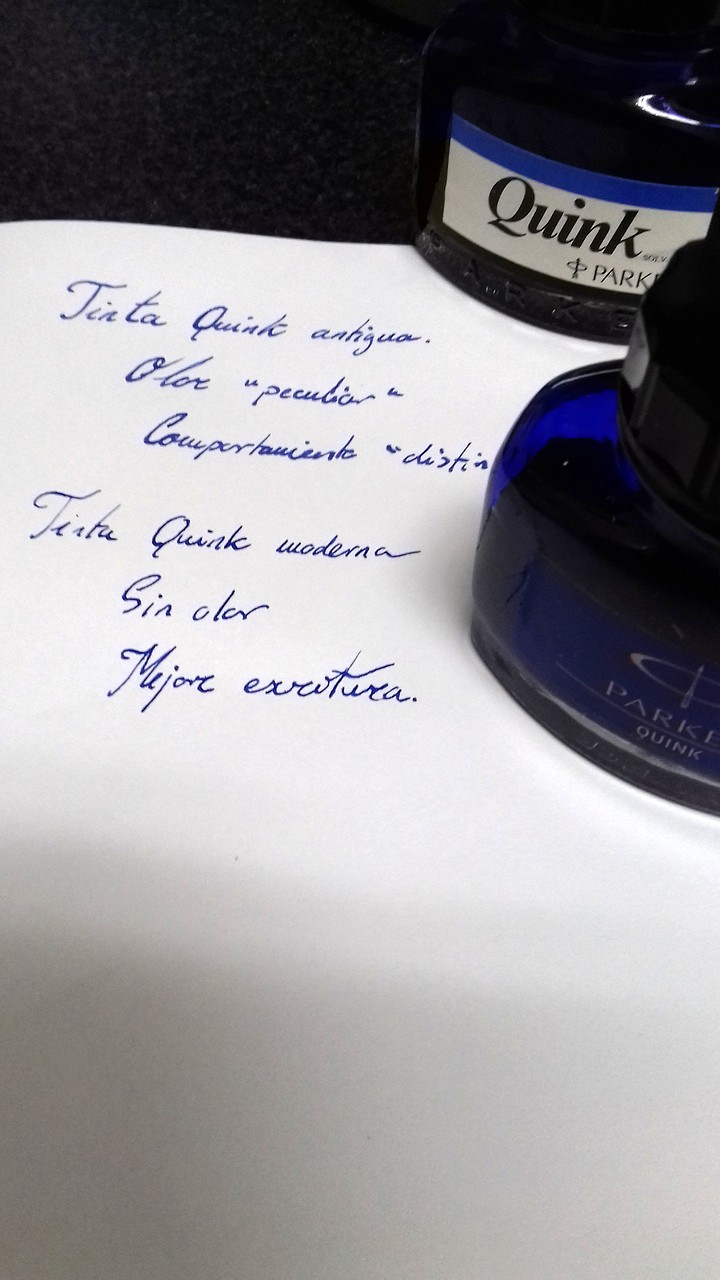 Quink
PARKE
PARKE
Tinta Quink antigua.
Olor "peculiar"
Comportamiento "distin
Tinta Quink moderna
Sin olor
Mejor escritura.
PARKE
QUINK